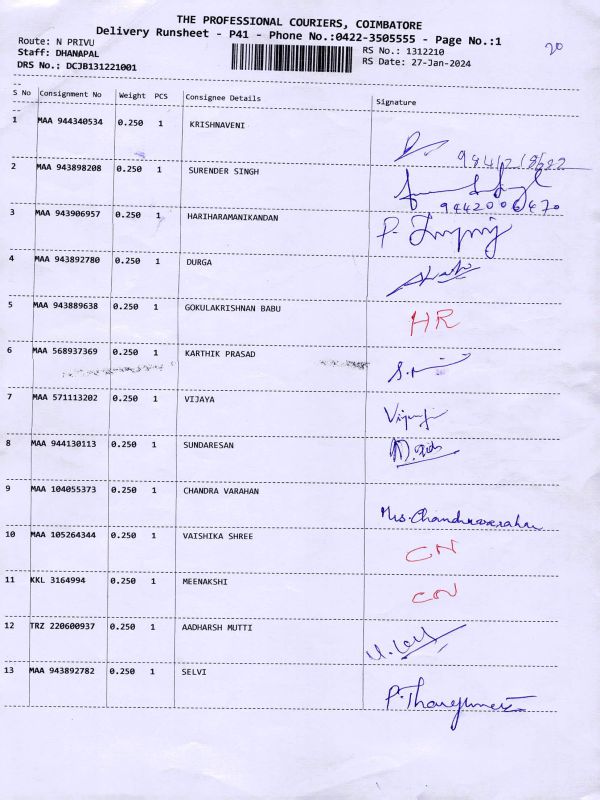 THE PROFESSIONAL COURIERS, COIMBATORE
Delivery Runsheet - P41 - Phone No.:0422-3505555 - Page No.:1
20
Route: N PRIVU
RS No.: 1312210
Staff: DHANAPAL
RS Date: 27-Jan-2024
DRS No.: DCJB131221001
S No Consignment No Weight PCS Consignee Details Signature
1 MAA 944340534 0.250 1 KRISHNAVENI
2 MAA 943898208 0.250 1 SURENDER SINGH
9442006470
3 MAA 943906957 0.250 1 HARIHARAMANIKANDAN
4 MAA 943892780 0.250 1 DURGA
5 MAA 943889638 0.250 1 GOKULAKRISHNAN BABU HR
6 MAA 568937369 0.250 1 KARTHIK PRASAD
7 MAA 571113202 0.250 1 VIJAYA
8 MAA 944130113 0.250 1 SUNDARESAN
9 MAA 104055373 0.250 1 CHANDRA VARAHAN
Mrs. Chandravarahan
10 MAA 105264344 0.250 1 VAISHIKA SHREE CN
11 KKL 3164994 0.250 1 MEENAKSHI CN
12 TRZ 220600937 0.250 1 AADHARSH MUTTI
13 MAA 943892782 0.250 1 SELVI